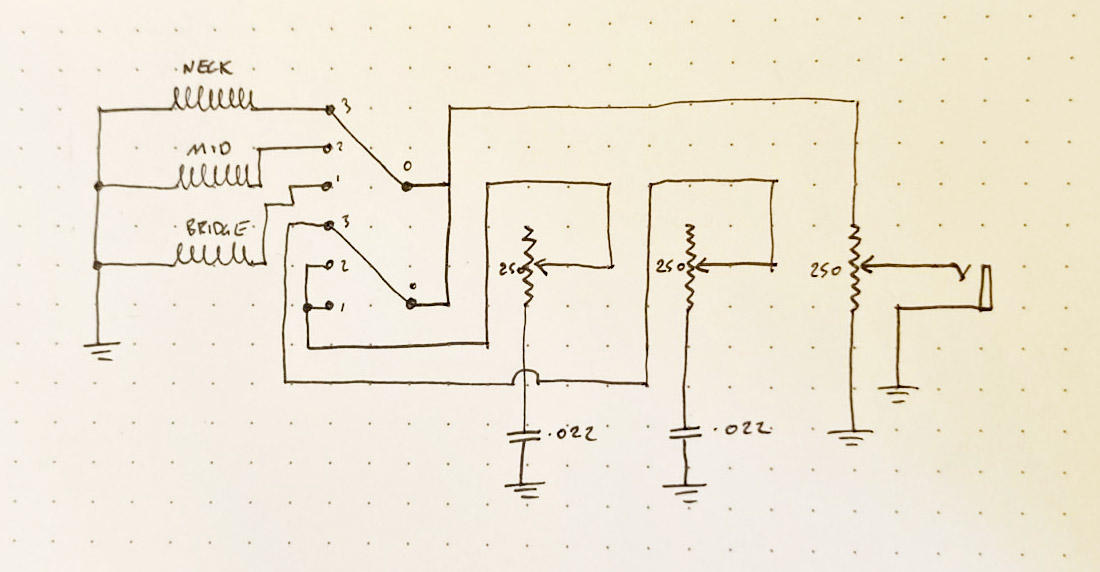 NECK
3
MID
2
0
1
BRIDGE
3
0
2
250
250
250
1
.022
.022